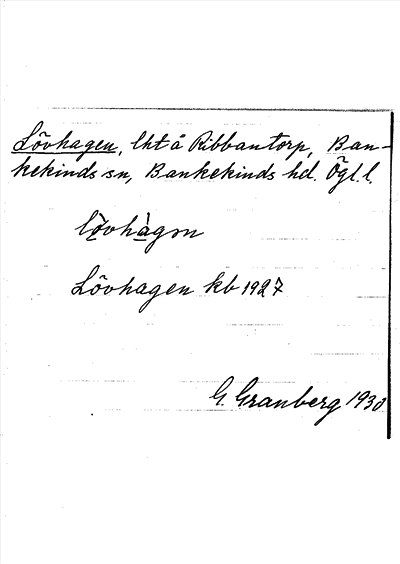 Lövhagen, lht å Ribbantorp, Ban-
kekinds sn, Bankekinds hd. Ögl. l.
Lövhagen kb 1927
G. Granberg 1930